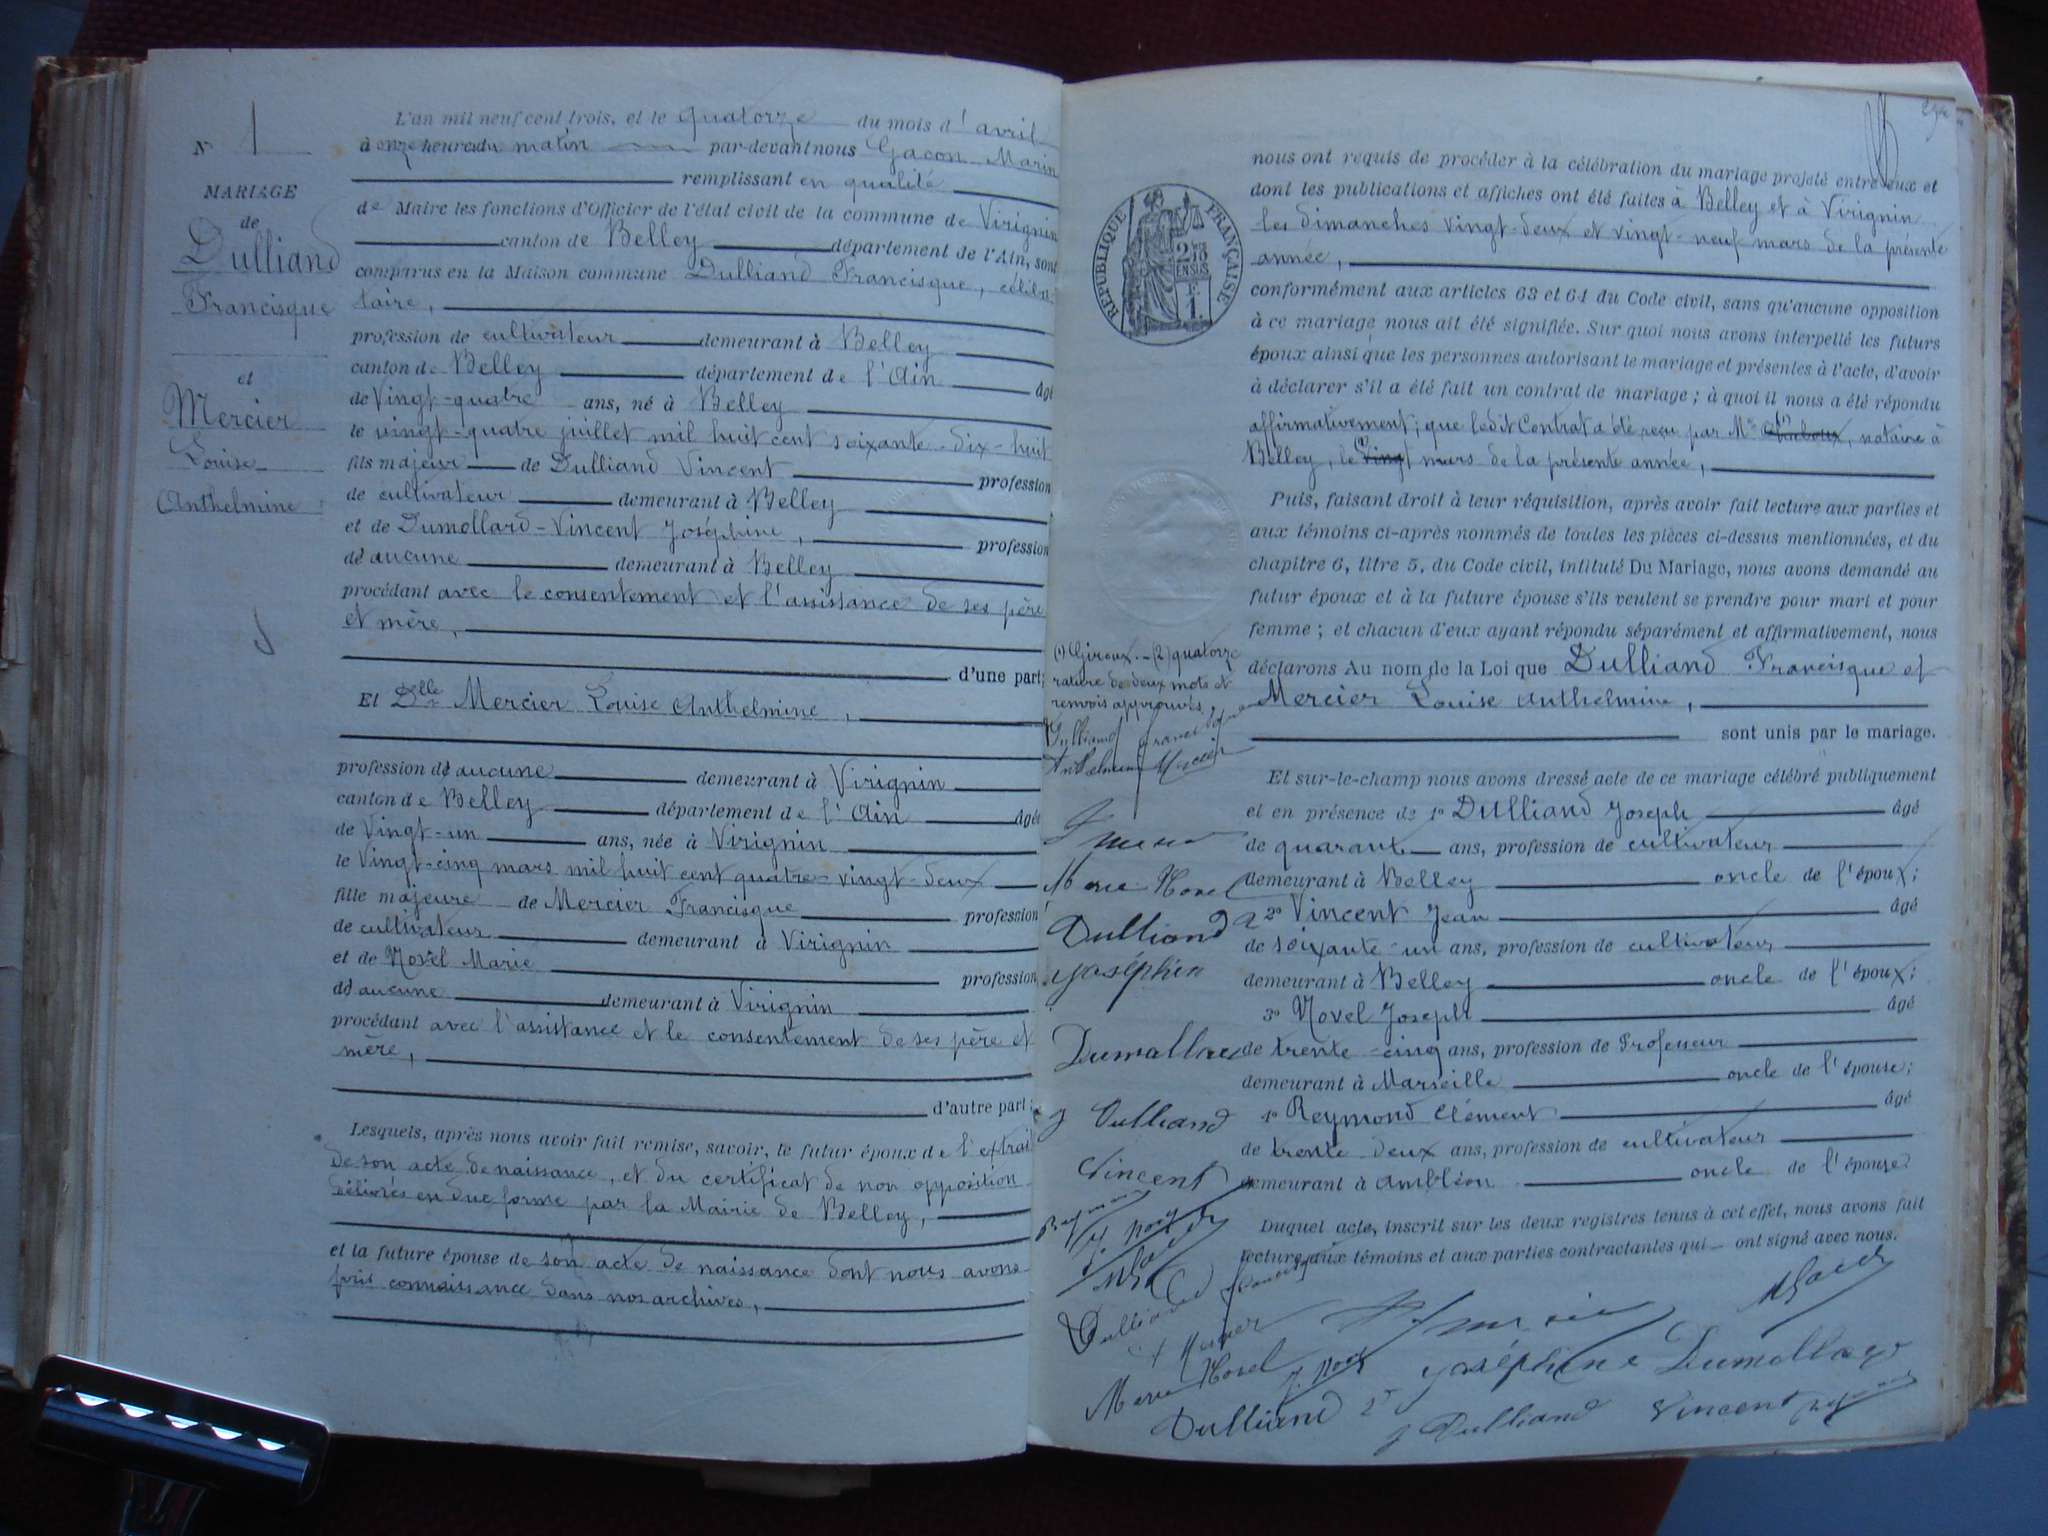 N° 1
MARIAGE
de
Dulliand
Francisque
et
Mercier
Louise
Anthelmine
L'an mil neuf cent trois, et le quatorze du mois d'avril
à onze heures du matin par-devant nous Gacon Marin
remplissant en qualité
de Maire les fonctions d'Officier de l'état civil de la commune de Virignin
canton de Belley département de l'Ain, sont
comparus en la Maison commune Dulliand Francisque, céliba
taire,
profession de cultivateur demeurant à Belley
canton de Belley département de l'Ain âgé
de Vingt-quatre ans, né à Belley
le vingt-quatre juillet mil huit cent soixante-dix-huit
fils majeur de Dulliand Vincent profession
de cultivateur demeurant à Belley
et de Dumollard-Vincent Joséphine, profession
de aucune demeurant à Belley
procédant avec le consentement et l'assistance de ses père
et mère,
d'une part;
Et Dlle Mercier Louise Anthelmine,
profession de aucune demeurant à Virignin
canton de Belley département de l'Ain âgée
de Vingt-un ans, née à Virignin
le Vingt-cinq mars mil huit cent quatre-vingt-deux
fille majeure de Mercier Francisque profession
de cultivateur demeurant à Virignin
et de Novel Marie profession
de aucune demeurant à Virignin
procédant avec l'assistance et le consentement de ses père et
mère,
d'autre part;
Lesquels, après nous avoir fait remise, savoir, le futur époux de l'extrait
de son acte de naissance, et du certificat de non opposition
délivrés en due forme par la Mairie de Belley,
et la future épouse de son acte de naissance dont nous avons
pris connaissance dans nos archives,
RÉPUBLIQUE FRANÇAISE
nous ont requis de procéder à la célébration du mariage projeté entre eux et
dont les publications et affiches ont été faites à Belley et à Virignin
les dimanches vingt-deux et vingt-neuf mars de la présente
année,
conformément aux articles 63 et 64 du Code civil, sans qu'aucune opposition
à ce mariage nous ait été signifiée. Sur quoi nous avons interpellé les futurs
époux ainsi que les personnes autorisant le mariage et présentes à l'acte, d'avoir
à déclarer s'il a été fait un contrat de mariage; à quoi il nous a été répondu
affirmativement; que ledit Contrat a été reçu par Me (1), notaire à
Belley, le (2) vingt mars de la présente année,
Puis, faisant droit à leur réquisition, après avoir fait lecture aux parties et
aux témoins ci-après nommés de toutes les pièces ci-dessus mentionnées, et du
chapitre 6, titre 5, du Code civil, intitulé Du Mariage, nous avons demandé au
futur époux et à la future épouse s'ils veulent se prendre pour mari et pour
femme; et chacun d'eux ayant répondu séparément et affirmativement, nous
déclarons Au nom de la Loi que Dulliand Francisque et
Mercier Louise Anthelmine,
sont unis par le mariage.
Et sur-le-champ nous avons dressé acte de ce mariage célébré publiquement
et en présence de 1° Dulliand Joseph âgé
de quarante ans, profession de cultivateur
demeurant à Belley oncle de l'époux;
2° Vincent Jean âgé
de soixante-un ans, profession de cultivateur
demeurant à Belley oncle de l'époux;
3° Novel Joseph âgé
de trente-cinq ans, profession de Professeur
demeurant à Marseille oncle de l'épouse;
4° Reymond Clément âgé
de trente-deux ans, profession de cultivateur
demeurant à Ambléon oncle de l'épouse
Duquel acte, inscrit sur les deux registres tenus à cet effet, nous avons fait
lecture aux témoins et aux parties contractantes qui ont signé avec nous.
(1) Giroux. - (2) quatorze
rature de deux mots et
renvois approuvés.
Dulliand Francisque
Anthelmine Mercier
Marie Novel
Dulliand
Joséphine
Dumollard
J Dulliand
Vincent
Dulliand
A Mercier
Marie Novel
Joséphine Dumollard
Dulliand
J Dulliand Vincent